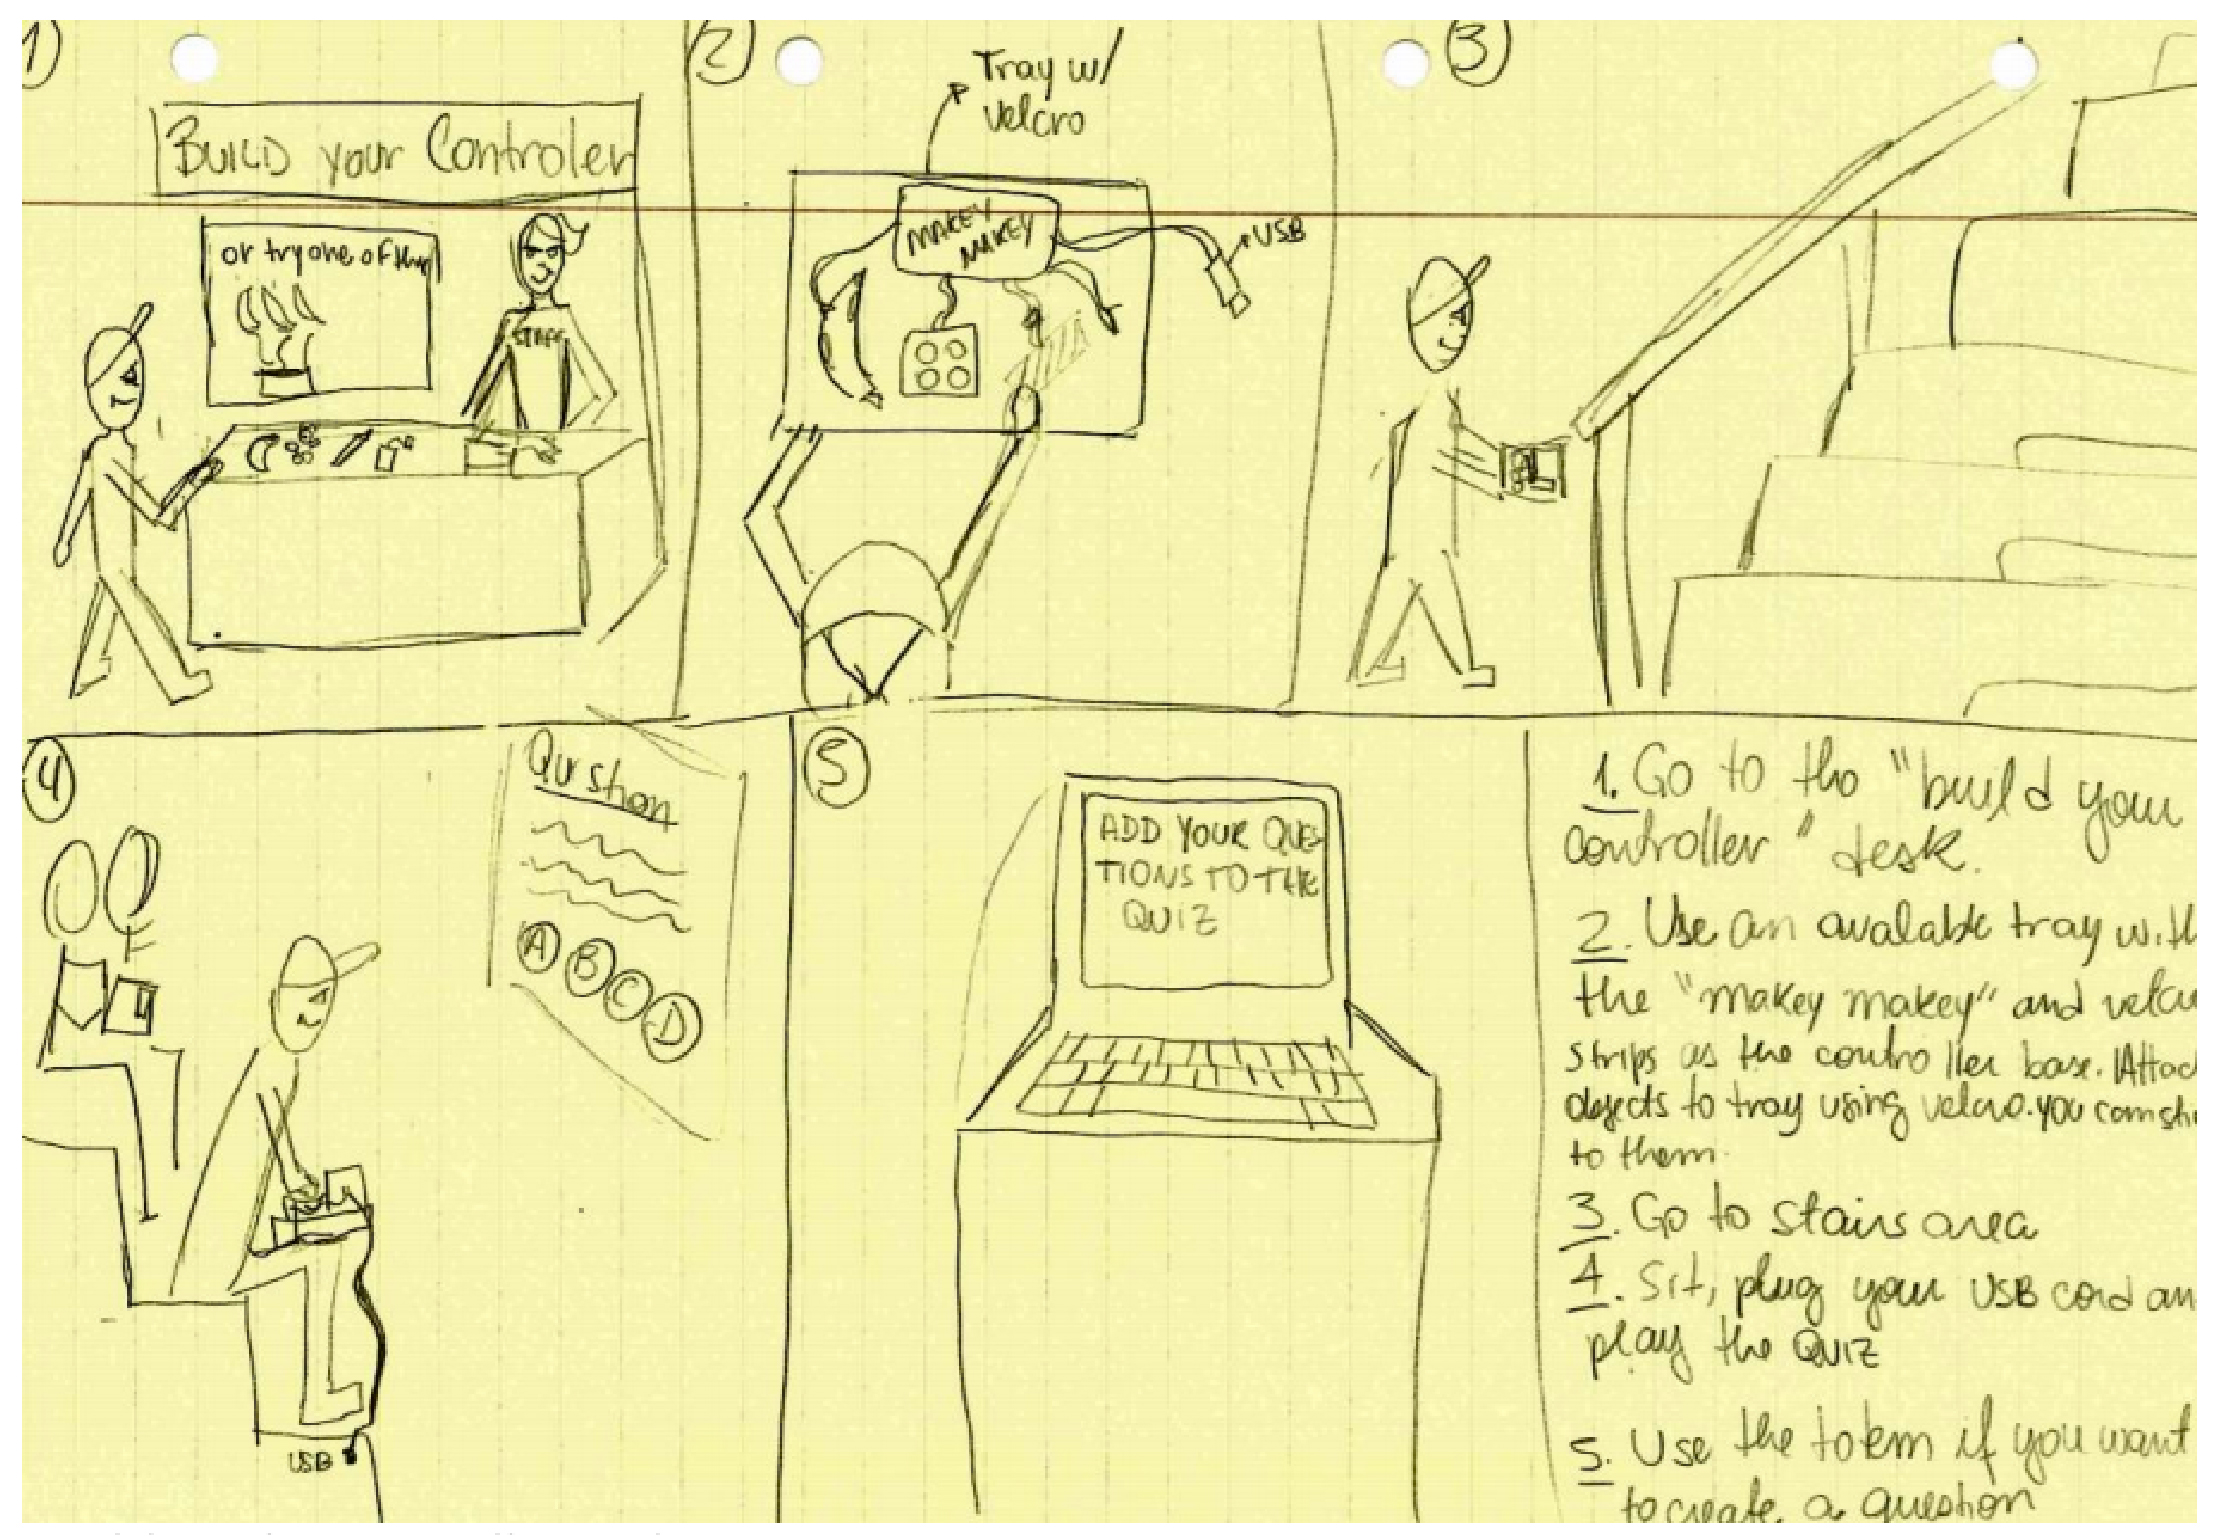 1)
BUILD your Controler
or try one of them
STAFF
2)
Tray w/
Velcro
MAKEY
MAKEY
USB
3
4
Qustion
A B C D
USB
5
ADD YOUR QUES
TIONS TO THE
QUIZ
1. Go to the "build your
controller" desk.
2. Use an avalable tray with
the "makey makey" and velcro
strips as the controller base. Attac
objects to tray using velcro. you can
to them.
3. Go to stairs area
4. Sit, plug your USB cord an
play the QUIZ
5. Use the totem if you want
to create a question